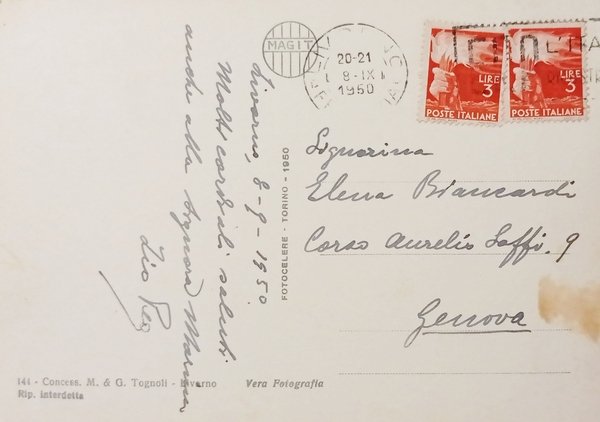 MAGIT
20-21
8-IX
1950
LIRE
3
POSTE ITALIANE
LIRE
3
POSTE ITALIANE
Livorno, 8-9-1950
Molti cordiali saluti
anche alla Signora Marina
Zio
FOTOCELERE - TORINO - 1950
Signorina
Elena Biancardi
Corso Aurelio Saffi. 9
Genova
141 - Concess. M. & G. Tognoli - Livorno
Vera Fotografia
Rip. interdetta